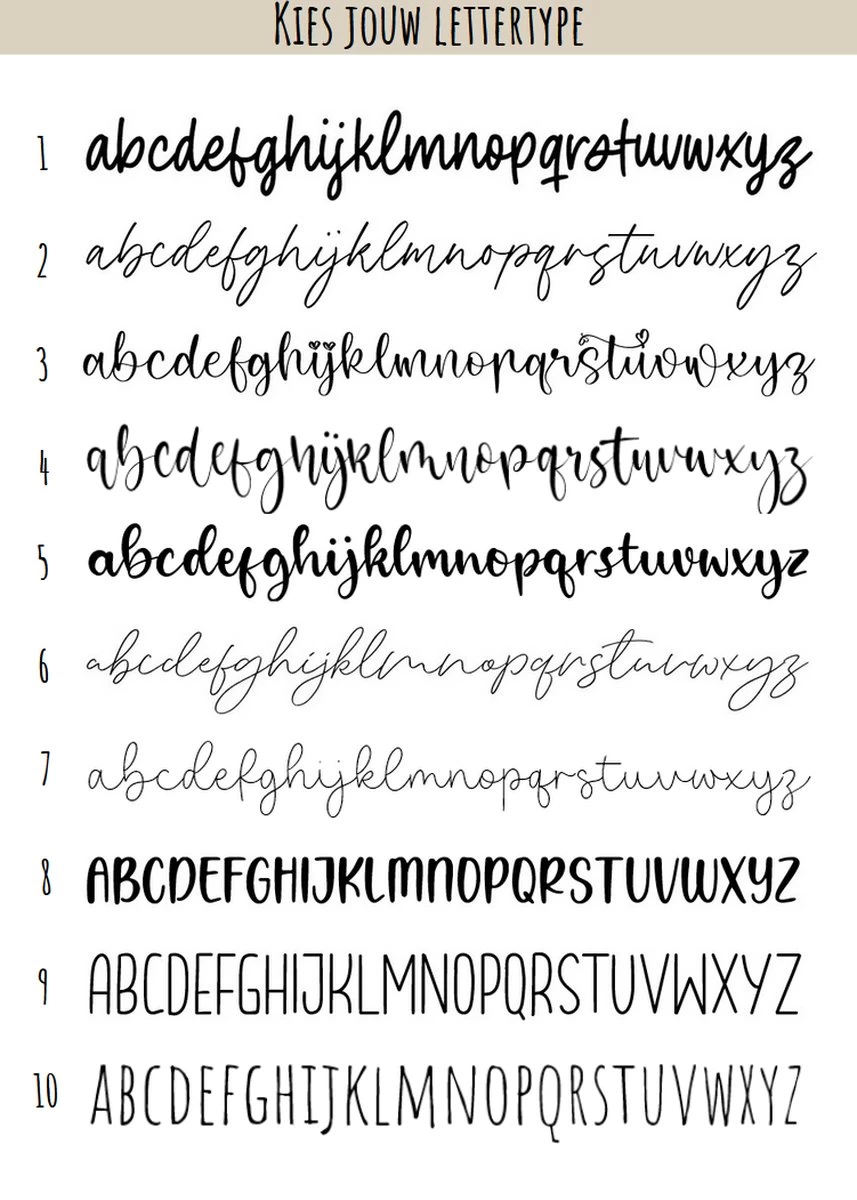 KIES JOUW LETTERTYPE
1 abcdefghijklmnopqrstuvwxyz
2 abcdefghijklmnopqrstuvwxyz
3 abcdefghijklmnopqrstuvwxyz
4 abcdefghijklmnopqrstuvwxyz
5 abcdefghijklmnopqrstuvwxyz
6 abcdefghijklmnopqrstuvwxyz
7 abcdefghijklmnopqrstuvwxyz
8 ABCDEFGHIJKLMNOPQRSTUVWXYZ
9 ABCDEFGHIJKLMNOPQRSTUVWXYZ
10 ABCDEFGHIJKLMNOPQRSTUVWXYZ